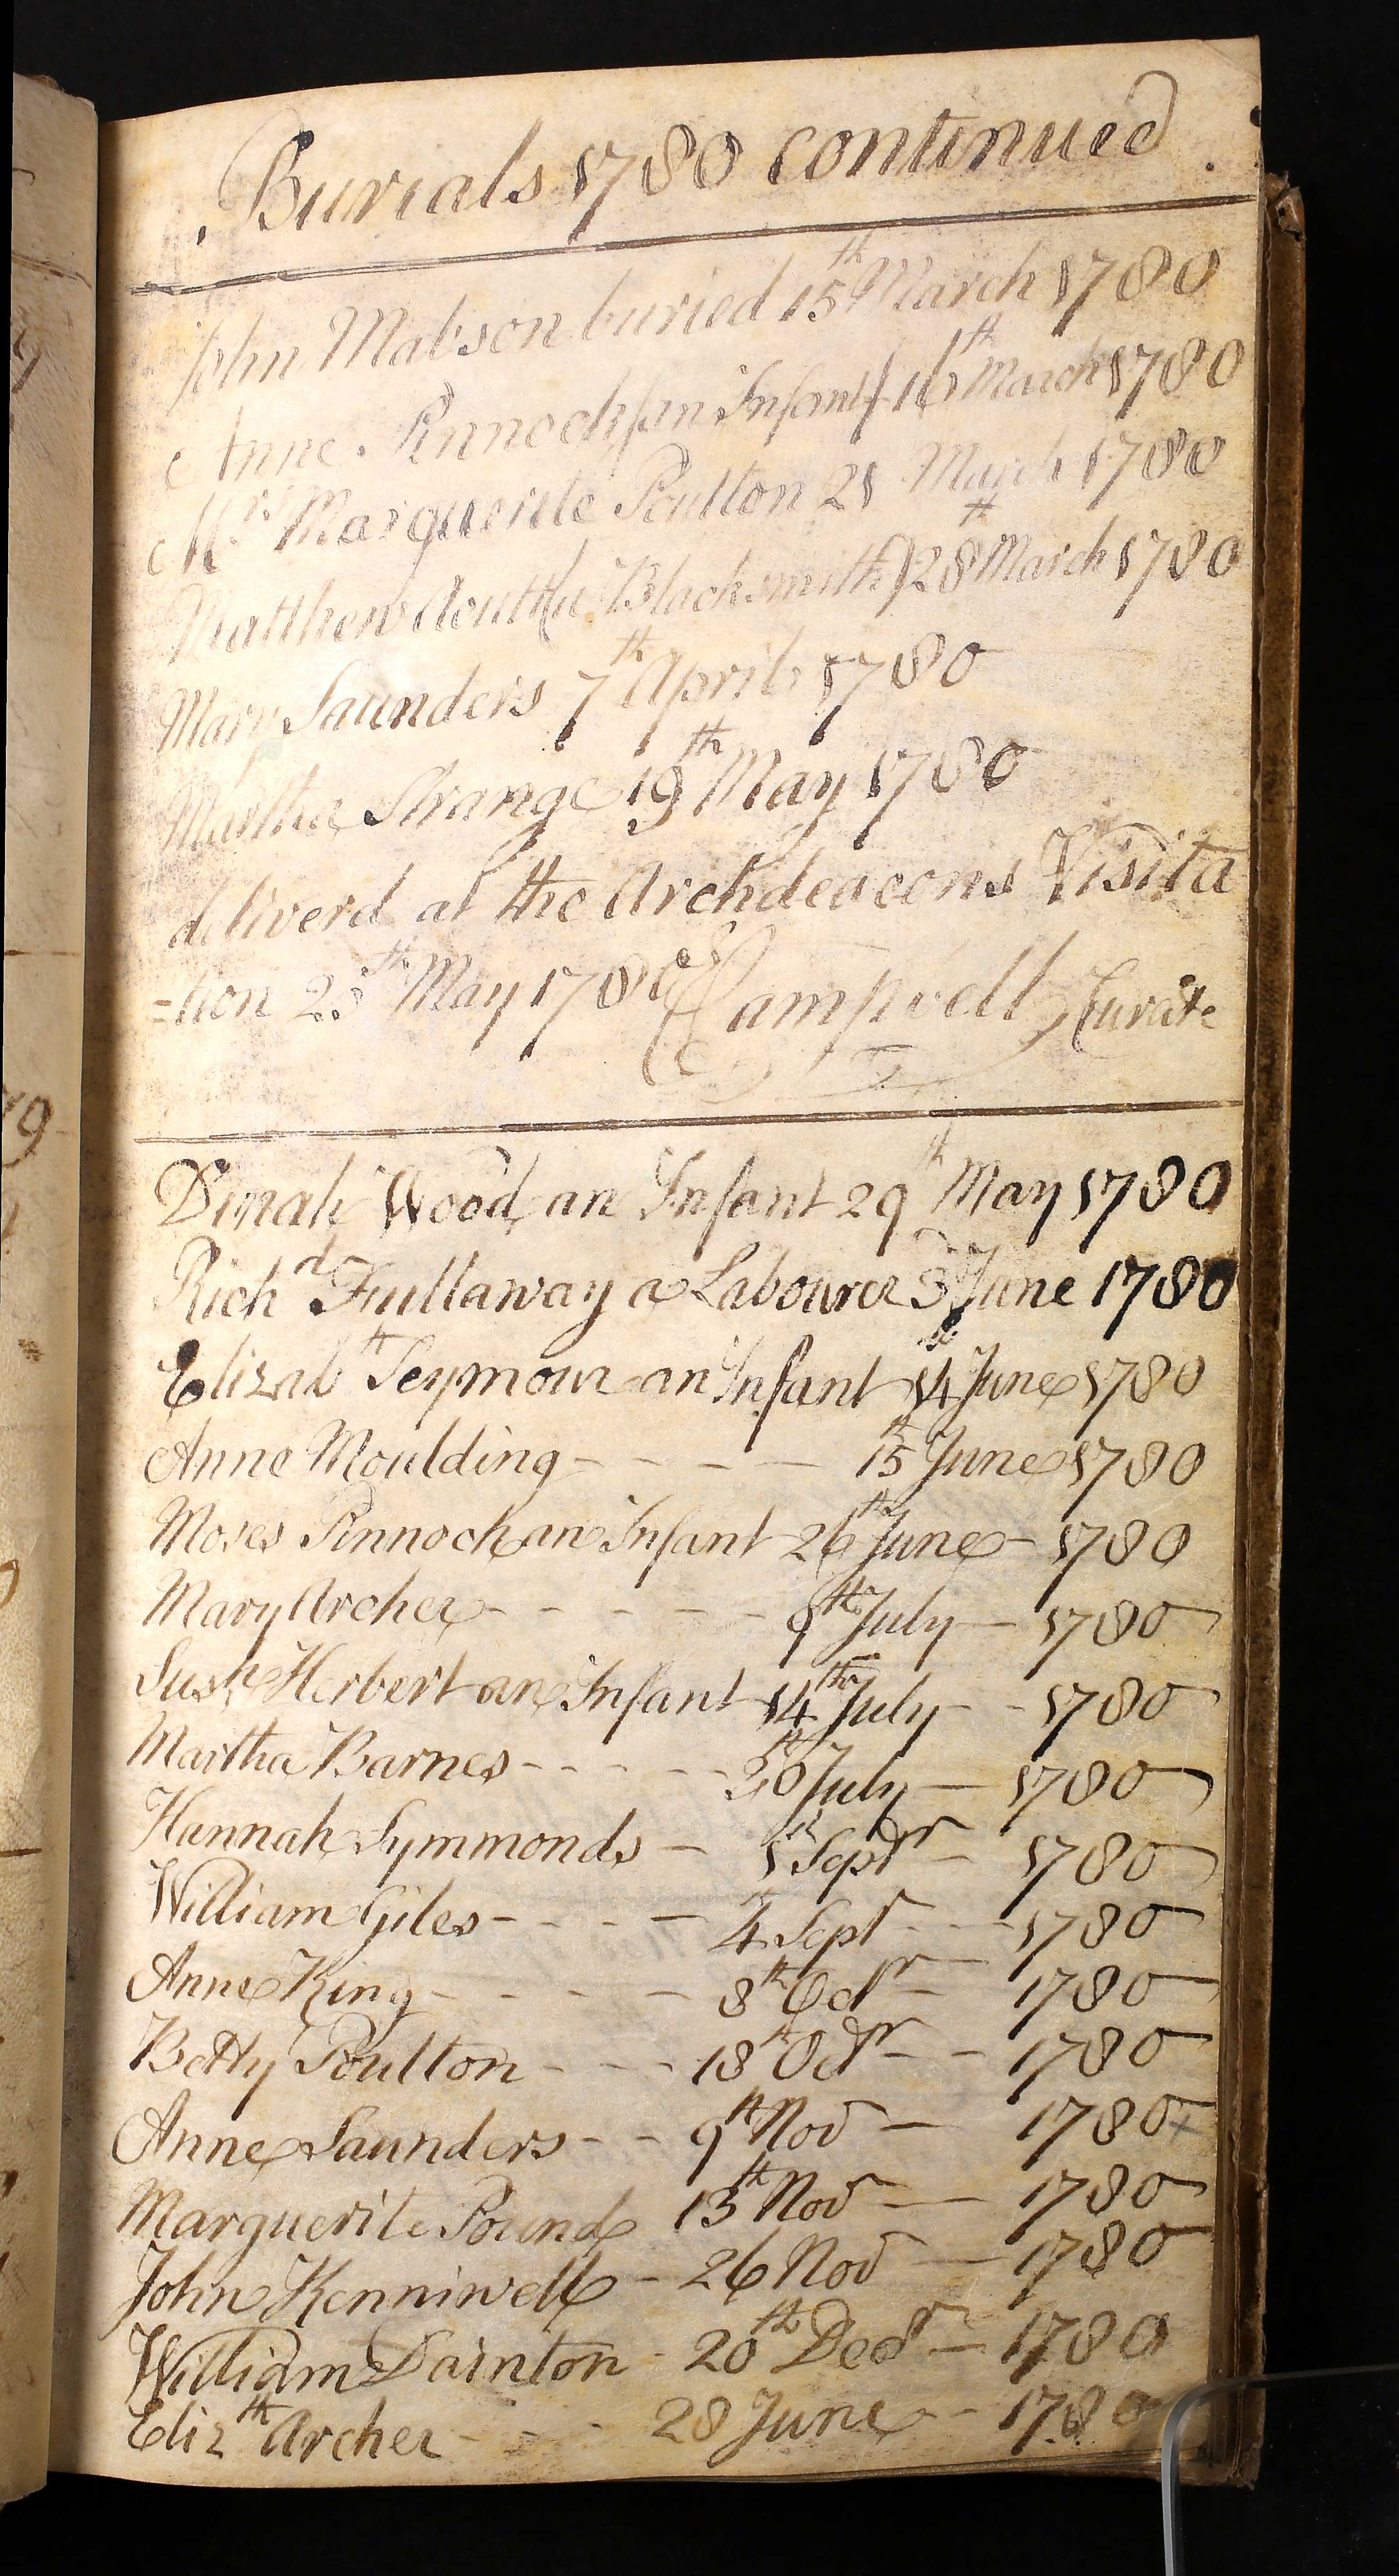 Burials 1780 continued
John Mabson buried 15th March 1780
Anne Pinnock (an Infant) 16th March 1780
Mrs Marguerite Poulton 21 March 1780
Matthew Blacksmith) 28th March 1780
Mary Saunders 7th April 1780
Martha Strange 19th May 1780
deliverd at the Archdeacons Visita
=tion May 1780 Campbell Curate
Dinah Wood an Infant 29th May 1780
Richd Fullaway a Labourer June 1780
Elizabth Seymour an Infant 14th June 1780
Anne Moulding - - - - 15th June 1780
Moses Pinnock an Infant 26th June - 1780
Mary Archer - - - - - - 9th July - 1780
Susah Herbert an Infant 14th July - - 1780
Martha Barnes - - - - - July - 1780
Hannah Symmonds - 1st Septr - 1780
William Giles - - - - 4th Sept - - - 1780
Anne King - - - - - 8th Octr - 1780
Betty Poulton - - - 18th Octr - - 1780
Anne Saunders - - 9th Nov - 1780
Marguerite Pound 13th Nov - 1780
John Kenniwell - 26 Nov - 1780
William Dainton - 20th Decr - 1780
Elizth Archer - - - 28 June - - 1780